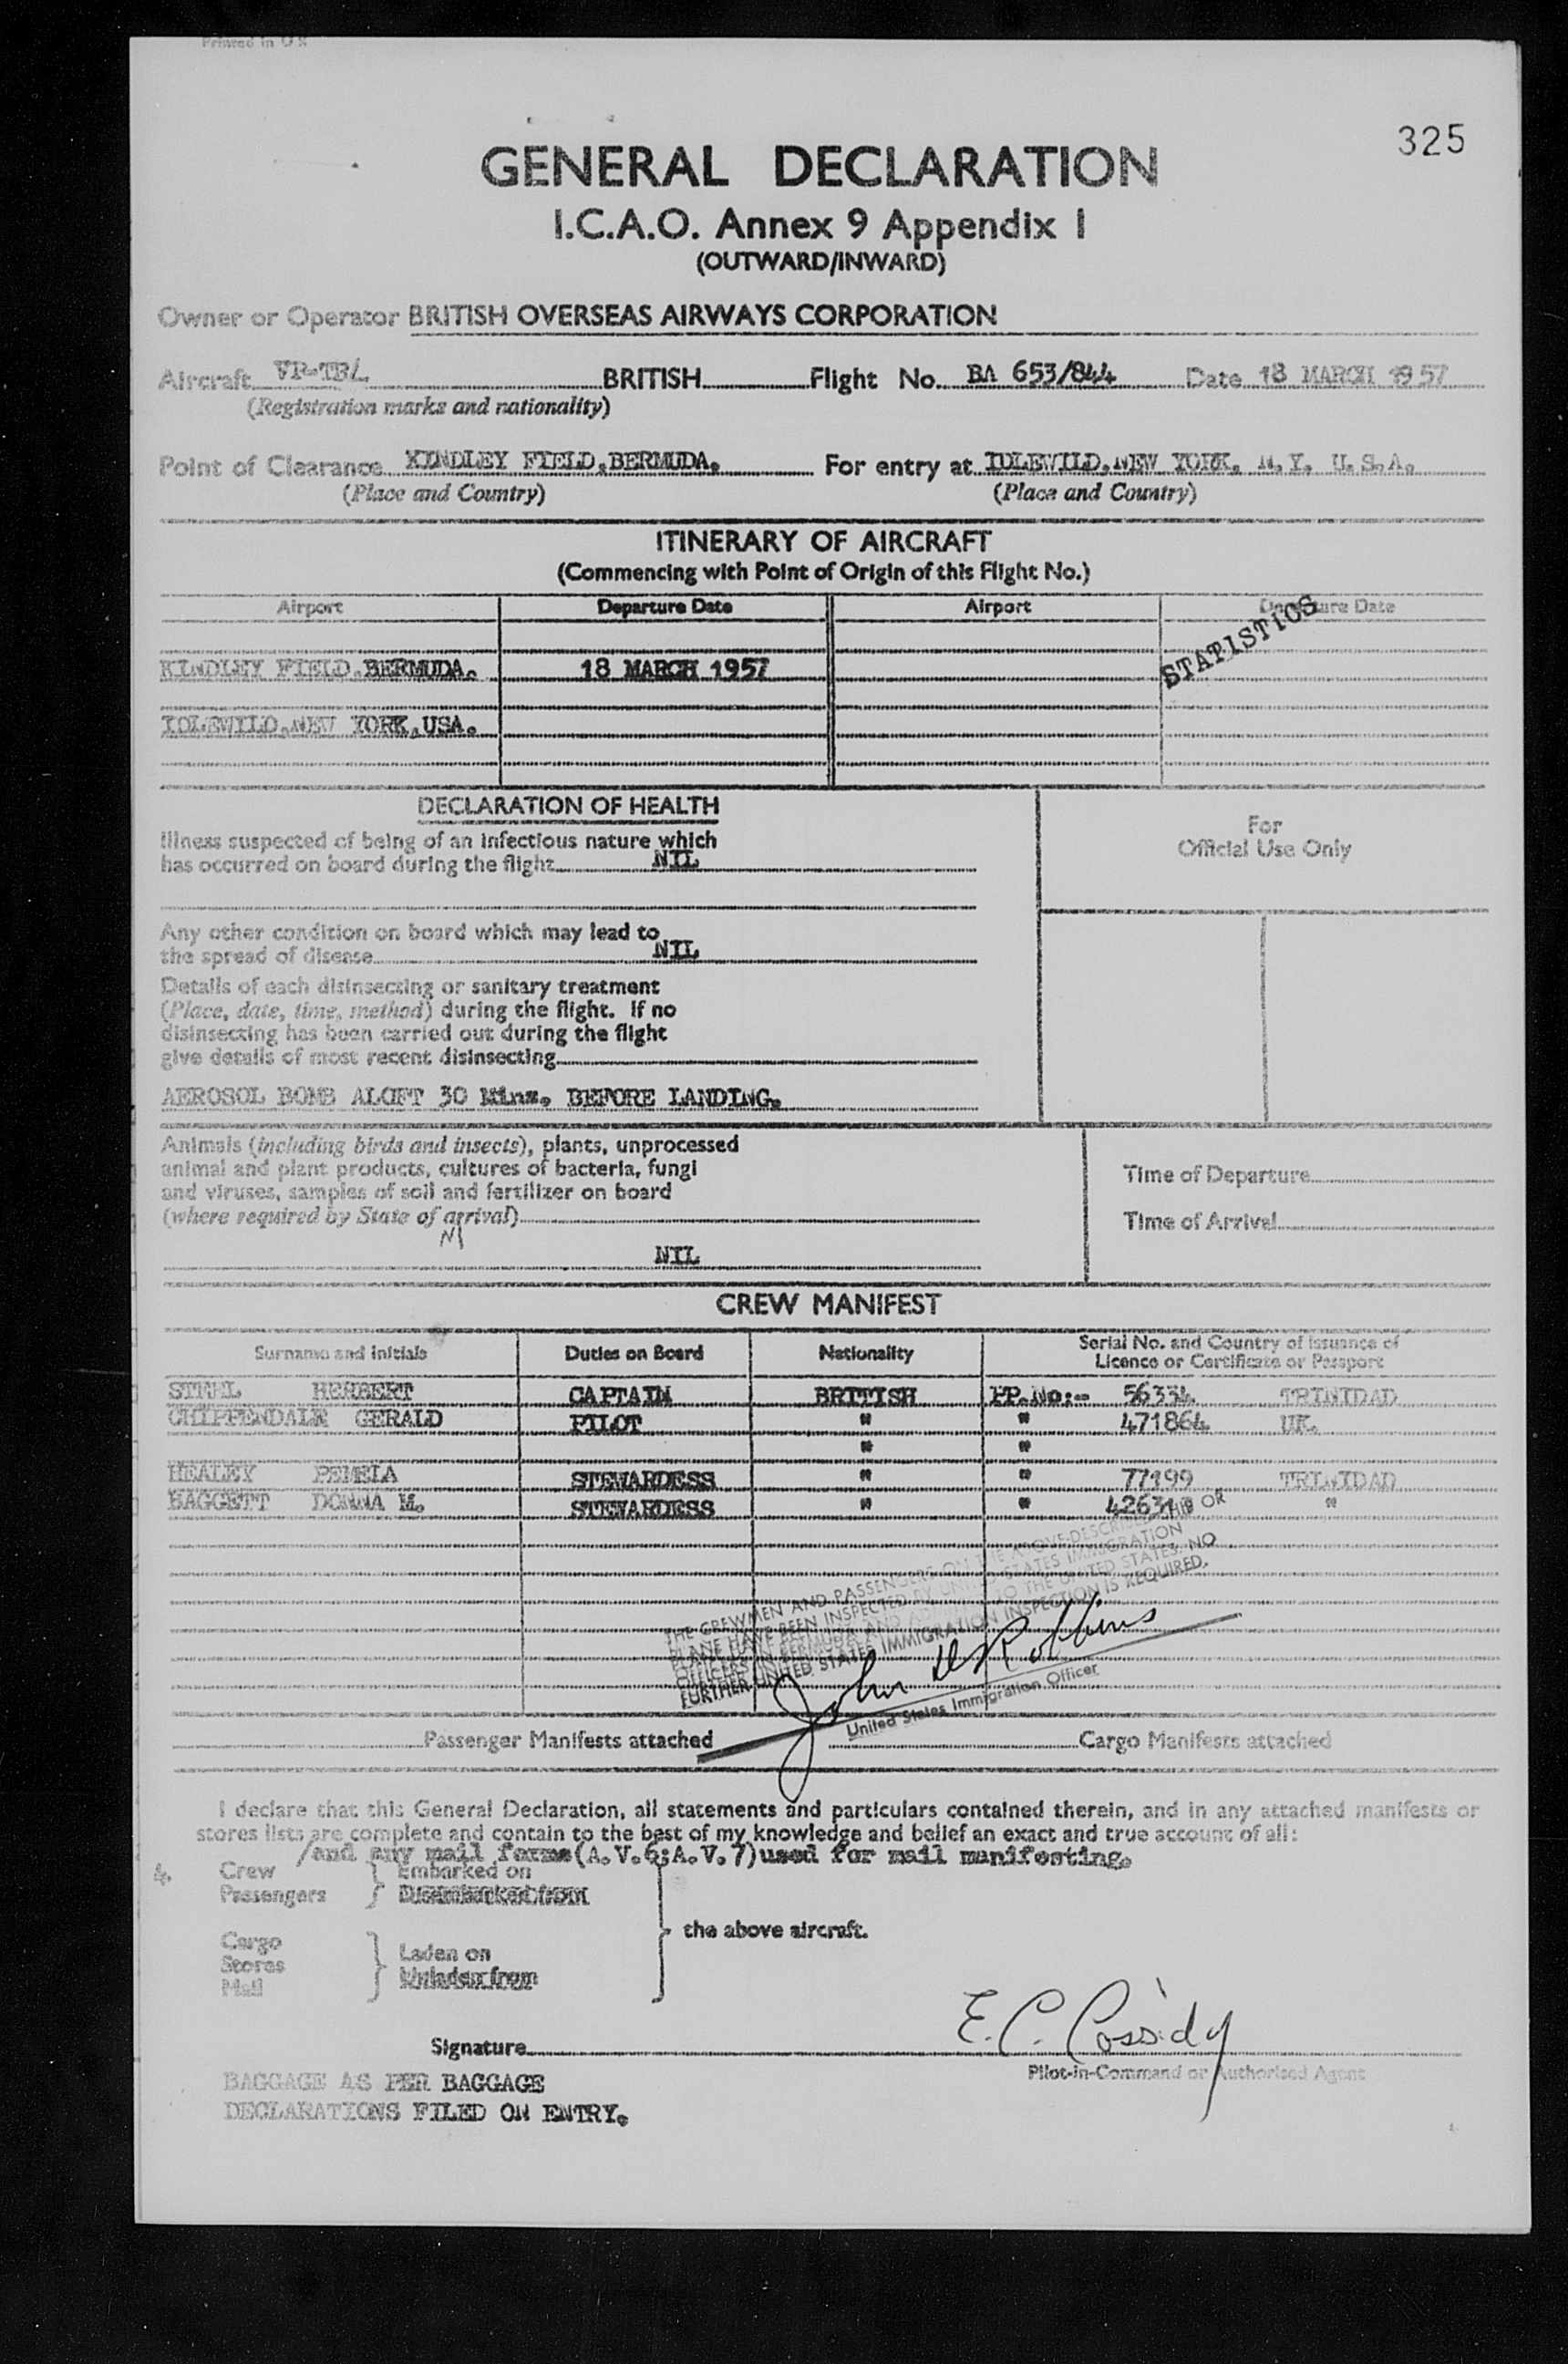 Printed in U K
325
GENERAL DECLARATION
I.C.A.O. Annex 9 Appendix I
(OUTWARD/INWARD)
Owner or Operator BRITISH OVERSEAS AIRWAYS CORPORATION
Aircraft VP-TBL BRITISH Flight No. BA 653/844 Date 18 MARCH 1957
(Registration marks and nationality)
Point of Clearance KINDLEY FIELD, BERMUDA. For entry at IDLEWILD, NEW YORK. N.Y. U.S.A.
(Place and Country) (Place and Country)
ITINERARY OF AIRCRAFT
(Commencing with Point of Origin of this Flight No.)
Airport Departure Date Airport Departure Date
STATISTICS
KINDLEY FIELD. BERMUDA. 18 MARCH 1957
IDLEWILD, NEW YORK, USA.
DECLARATION OF HEALTH
Illness suspected of being of an infectious nature which
has occurred on board during the flight NIL
For
Official Use Only
Any other condition on board which may lead to
the spread of disease NIL
Details of each disinsecting or sanitary treatment
(Place, date, time, method) during the flight. If no
disinsecting has been carried out during the flight
give details of most recent disinsecting
AEROSOL BOMB ALOFT 30 Mins. BEFORE LANDING.
Animals (including birds and insects), plants, unprocessed
animal and plant products, cultures of bacteria, fungi
and viruses, samples of soil and fertilizer on board
(where required by State of arrival)
NIL
Time of Departure
Time of Arrival
CREW MANIFEST
Surname and initials Duties on Board Nationality Serial No. and Country of issuance of
Licence or Certificate or Passport
STAHL HERBERT CAPTAIN BRITISH PP.No:- 56334 TRINIDAD
CHIPPENDALE GERALD PILOT " " 471864 UK.
" "
HEALEY PEMELA STEWARDESS " " 77199 TRINIDAD
BAGGETT DONNA M. STEWARDESS " " "
THE CREWMEN AND PASSENGERS ON THE ABOVE-DESCRIBED SHIP OR
PLANE HAVE BEEN INSPECTED BY UNITED STATES IMMIGRATION
OFFICERS IN BERMUDA AND ADMITTED TO THE UNITED STATES. NO
FURTHER UNITED STATES IMMIGRATION INSPECTION IS REQUIRED.
John Robbins
United States Immigration Officer
Passenger Manifests attached Cargo Manifests attached
I declare that this General Declaration, all statements and particulars contained therein, and in any attached manifests or
stores lists are complete and contain to the best of my knowledge and belief an exact and true account of all:
/and any mail forms(A.V.6;A.V.7)used for mail manifesting.
4. Crew } Embarked on
Passengers } Disembarked from
the above aircraft.
Cargo
Stores } Laden on
Mail } Unladen from
E. C. Cassidy
Signature
Pilot-in-Command or Authorised Agent
BAGGAGE AS PER BAGGAGE
DECLARATIONS FILED ON ENTRY.